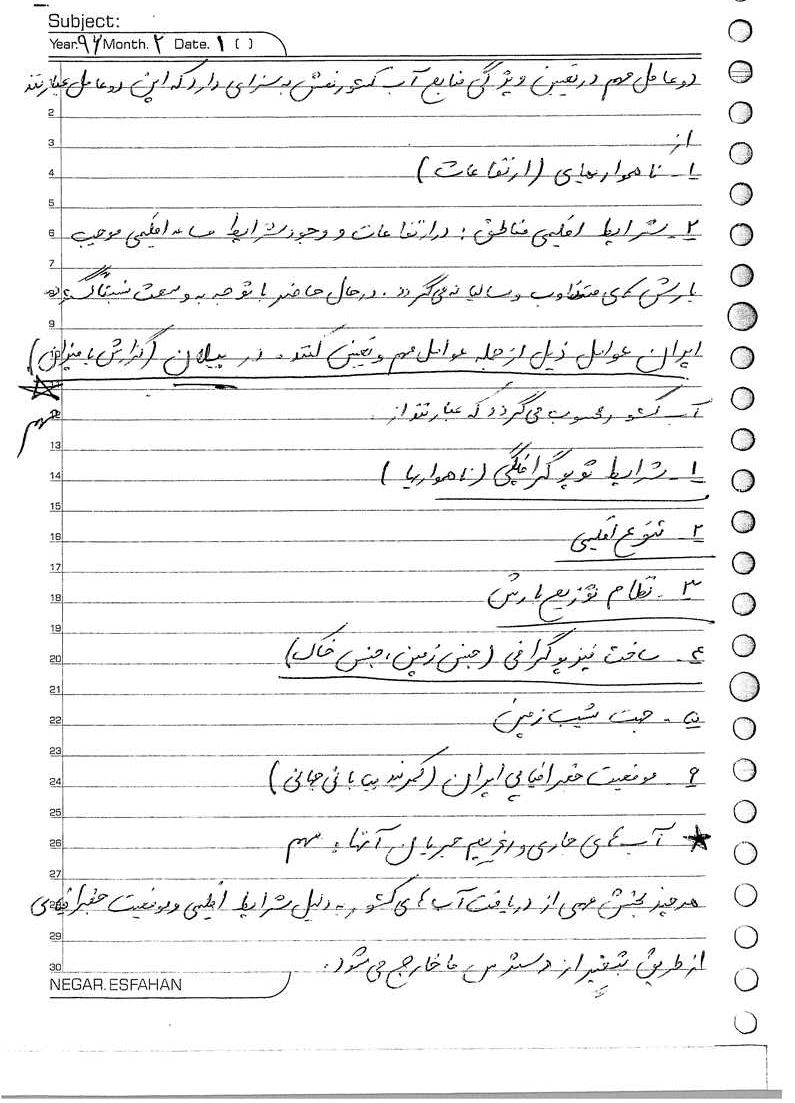 Subject:
Year. ۹۴ Month. ۲ Date. ۱ ( )
دو عامل مهم در تعیین ویژگی منابع آب کشور نقش به سزای دارد که این دو عامل عبارتند
2
3 از
4 ۱- ناهمواریهای (ارتفاعات)
5
6 ۲- شرایط اقلیمی مناطق: در ارتفاعات و وجود شرایط اقلیمی موجب
7
بارش های متفاوت سالیانه می گردد. در حال حاضر با توجه به وسعت نسبتا گسترده
9
ایران عوامل ذیل از جمله عوامل مهم و تعیین کننده. در بیلان (گزارش یا میزان)
مهم
آب کشور محسوب می گردد که عبارتند از.
13
14 ۱- شرایط توپوگرافیکی (ناهمواریها)
15
16 ۲- تنوع اقلیمی
17
18 ۳- نظام توزیع بارش
19
20 ۴- ساخت فیزیوگرافی (جنس زمین، جنس خاک)
21
22 ۵- جهت شیب زمین
23
24 ۶- موقعیت جغرافیایی ایران (کمربند بیابانی جهانی)
25
26 آب های جاری و رژیم جریان آنها: مهم
27
هرچند بخش مهمی از دریافت آب های کشور به دلیل شرایط اقلیمی و موقعیت جغرافیایی
29
30 از طریق تبخیر از دسترس ما خارج می شود.
NEGAR.ESFAHAN